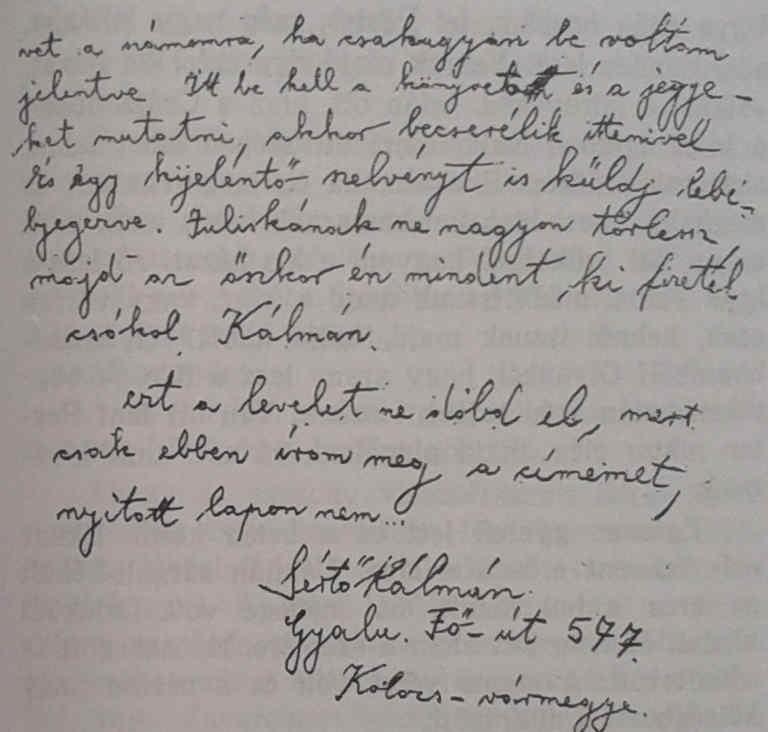 vet a számomra, ha csakugyan be voltam
jelentve. Itt be kell a könyvet és a jegye-
ket mutatni, akkor becserélik ittenivel
És egy kijelentő-szelvényt is küldj lebé-
lyegezve. Juliskának ne nagyon törlessz
majd az őszkor én mindent ki fizetek
csókol Kálmán.
ezt a levelet ne dobd el, mert
csak ebben írom meg a címemet,
nyitott lapon nem...
Sértő Kálmán.
Gyalu. Fő-út 577.
Kolozs-vármegye.